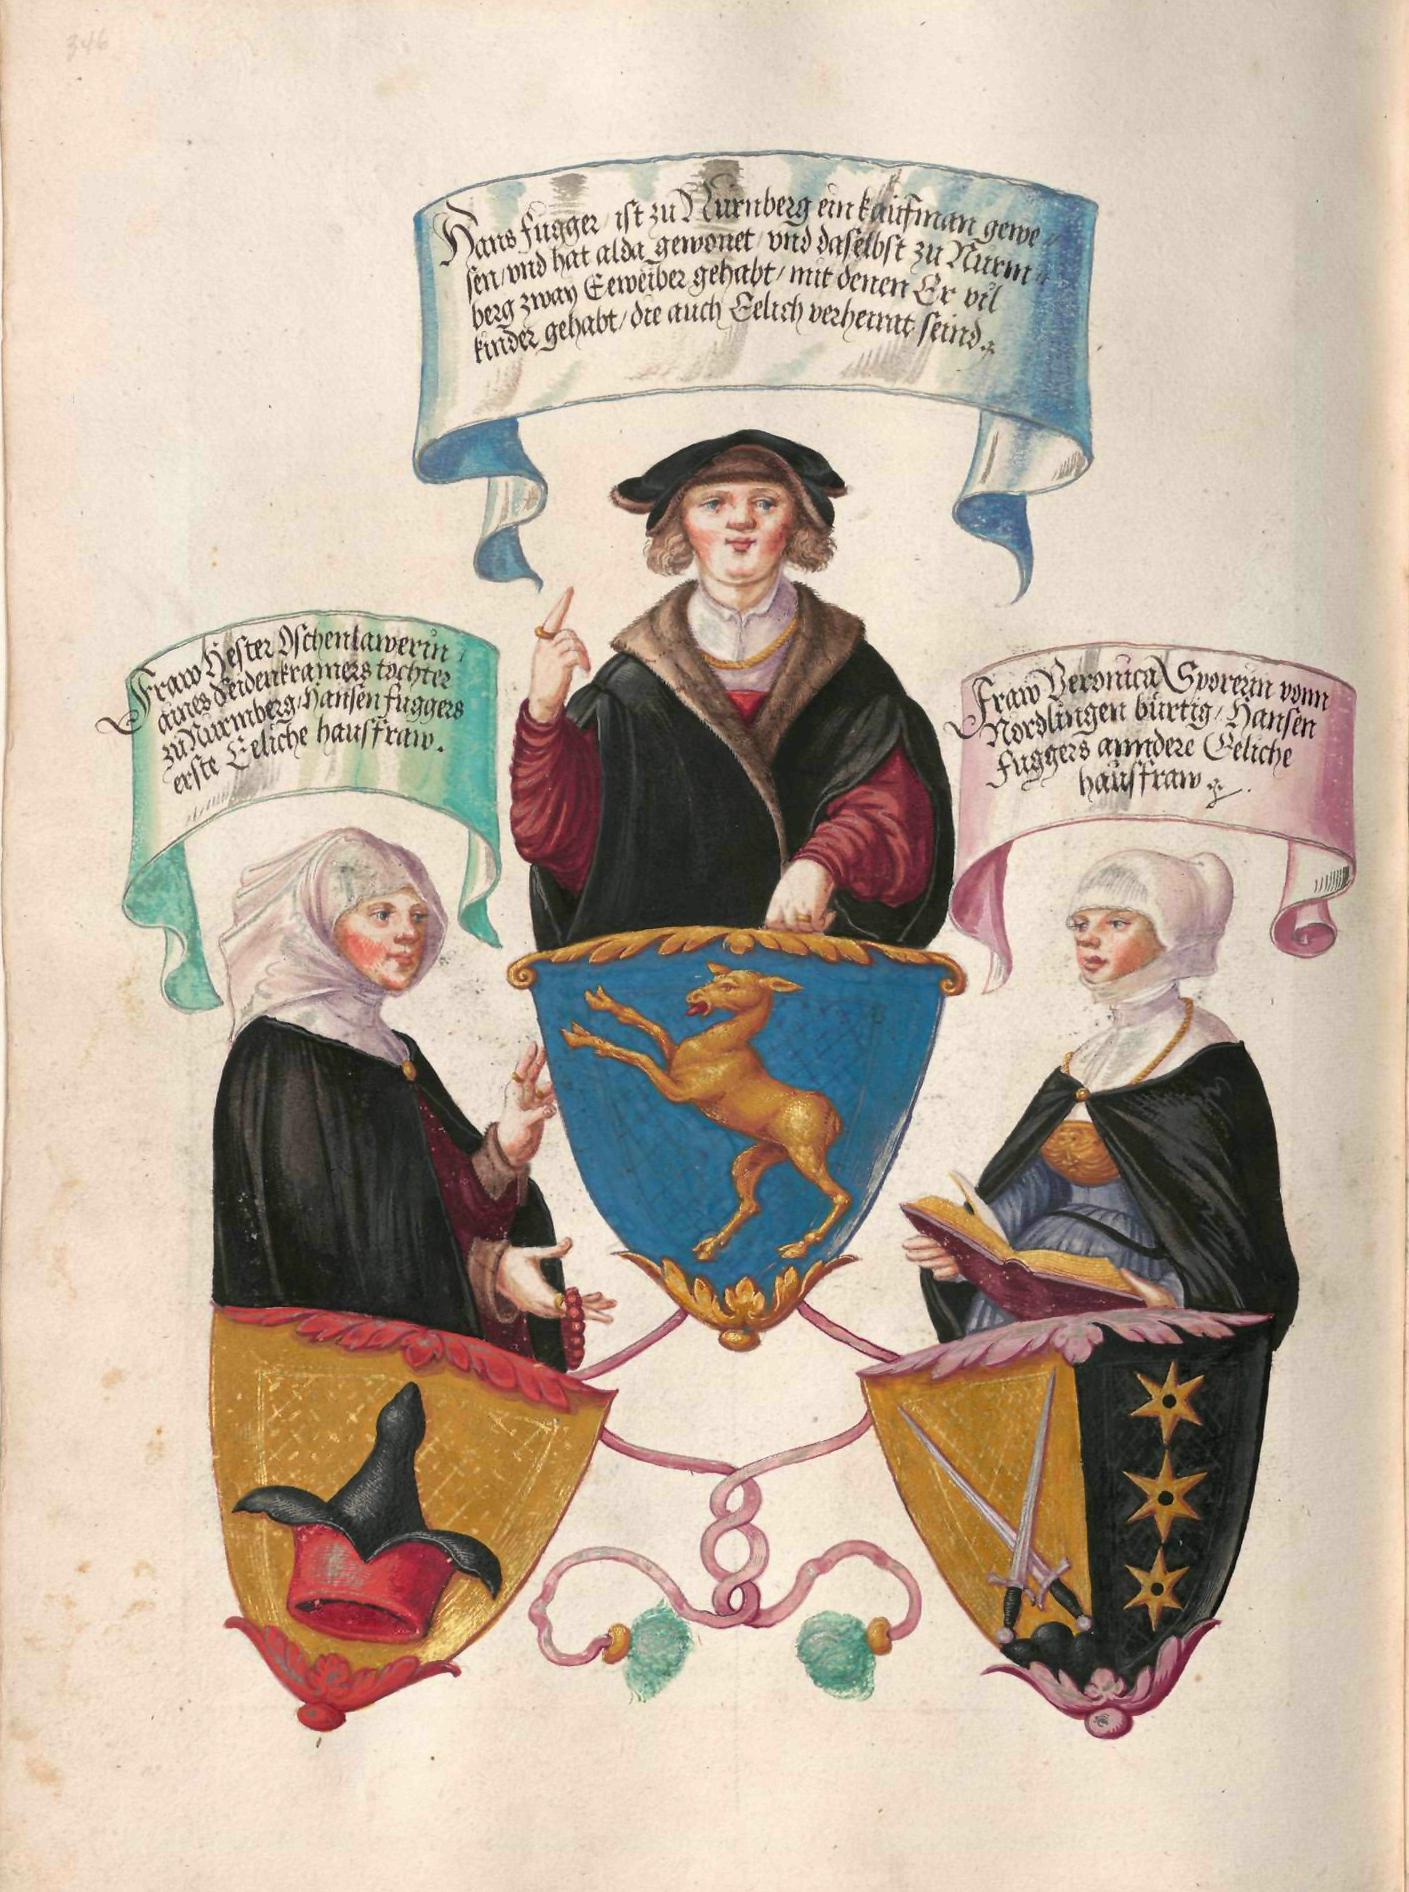 346
Hans fugger / ist zu Nurnberg ein kaufman gewe=
sen / vnd hat alda gewonet / vnd daselbst zu Nurm=
berg zway Eeweiber gehabt / mit denen Er vil
kinder gehabt / die auch Eelich verheirat seind.
Fraw Hester
aines Seidenkramers tochter
zu Nurmberg / Hansen fuggers
erste Eeliche hausfraw.
Fraw Veronica Sporerin vonn
Nordlingen bürtig / Hansen
fuggers anndere Eeliche
hausfraw